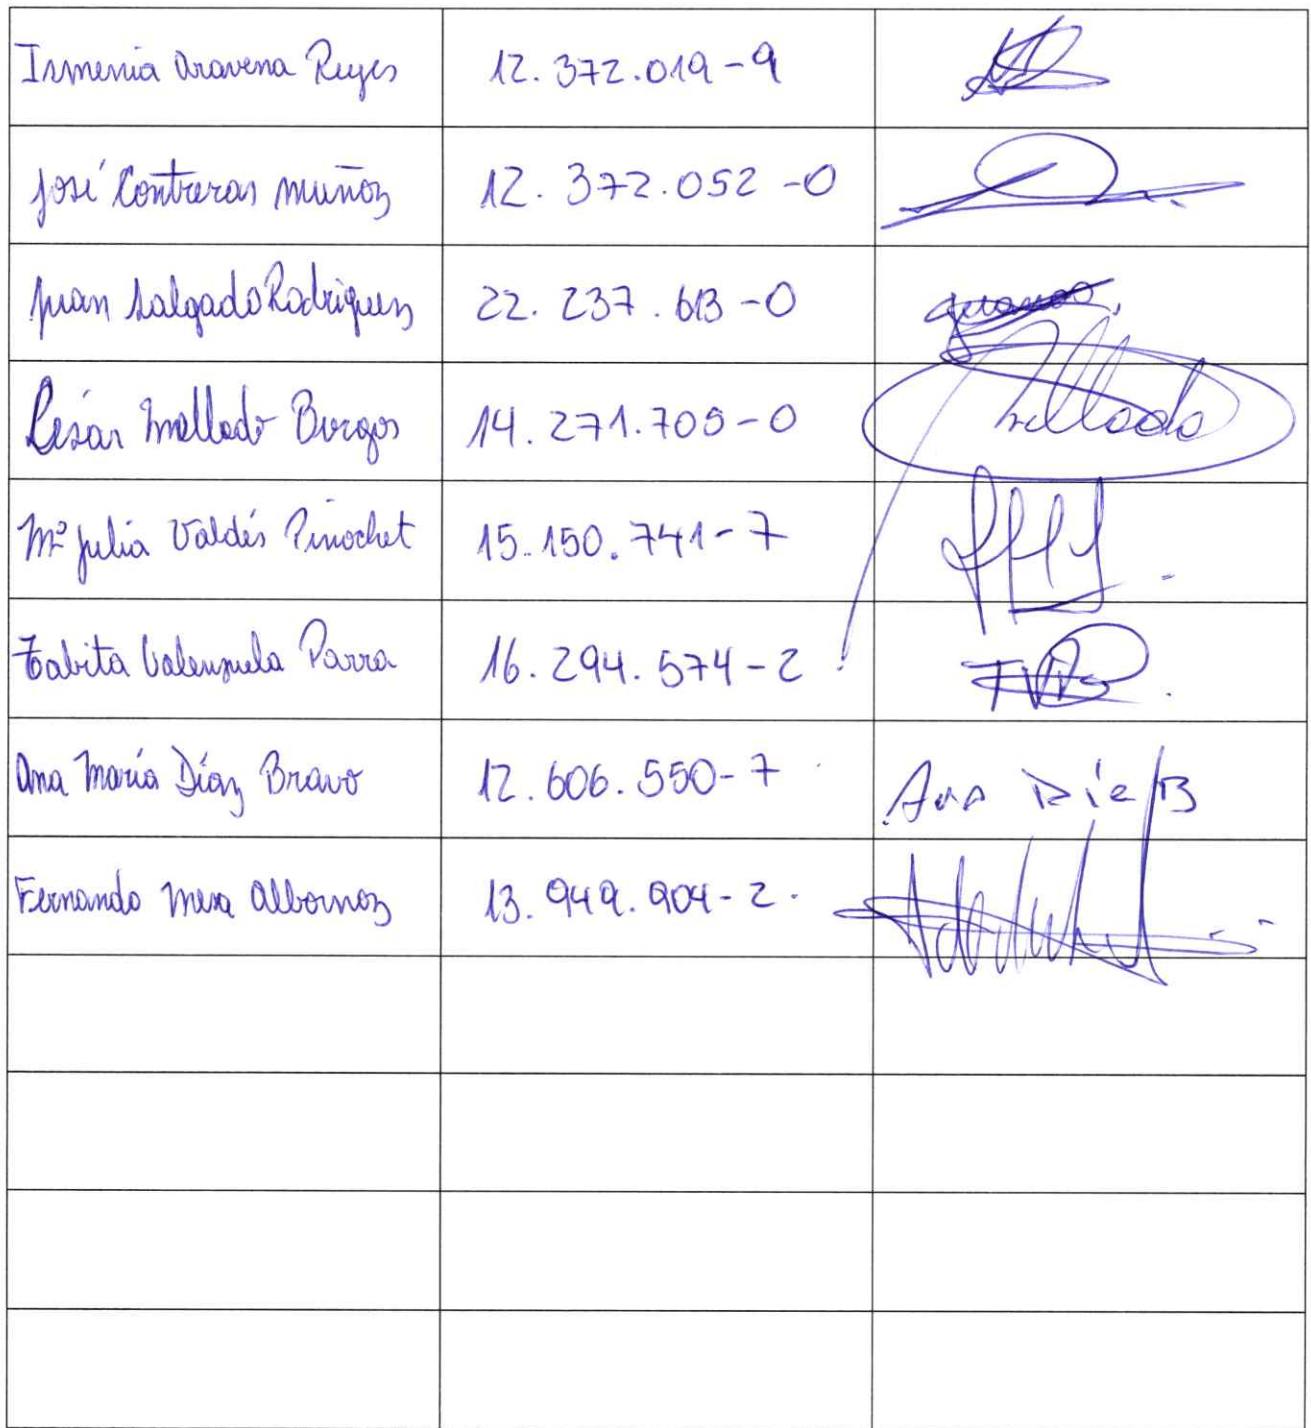 Ismenia Aravena Reyes 12.372.019-9
José Contreras Muñoz 12.372.052-0
Juan Salgado Rodriguez 22.237.613-0
César Mellado Burgos 14.271.705-0 Mellado
Mª Julia Valdés Pinochet 15.150.741-7
Tabita Valenzuela Parra 16.294.574-2
Ana María Díaz Bravo 12.606.550-7 Ana Díaz B
Fernando Mesa Albornoz 13.949.904-2.